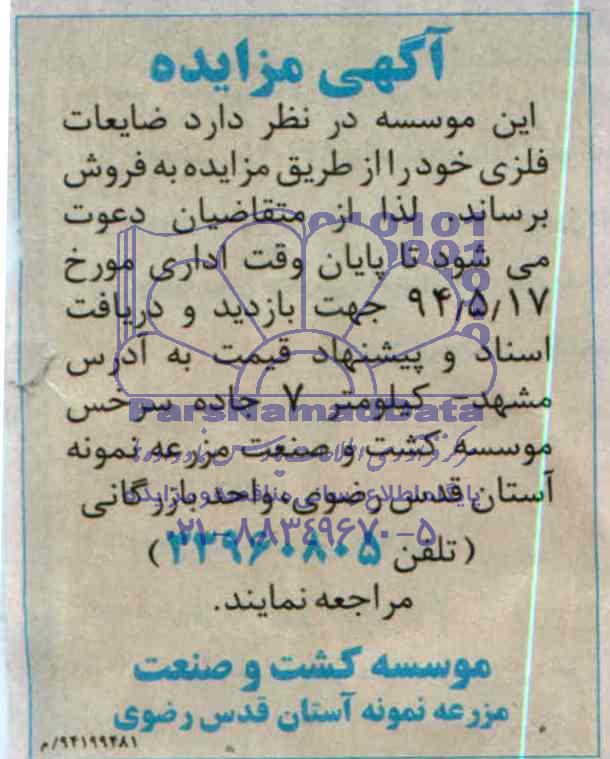 آگهی مزایده
این موسسه در نظر دارد ضایعات
فلزی خود را از طریق مزایده به فروش
برساند. لذا از متقاضیان دعوت
می شود تا پایان وقت اداری مورخ
۹۴/۵/۱۷ جهت بازدید و دریافت
اسناد و پیشنهاد قیمت به آدرس
مشهد- کیلومتر ۷ جاده سرخس
موسسه کشت و صنعت مزرعه نمونه
آستان قدس رضوی، واحد بازرگانی
(تلفن ۳۳۹۶۰۸۰۵)
مراجعه نمایند.
موسسه کشت و صنعت
مزرعه نمونه آستان قدس رضوی
۹۴۱۹۹۴۸۱/م
ParsNamadData
پایگاه اطلاع رسانی مناقصه و مزایده
۰۲۱-۸۸۳۴۹۶۷۰-۵